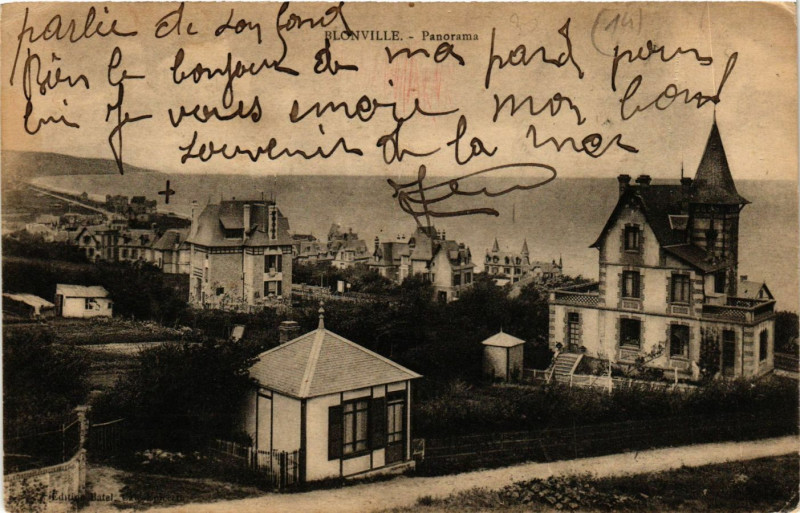 parlie de Lou Fond
BLONVILLE. - Panorama
(14)
Bien le bonjour de ma part pour
lui Je vous envoie mon bon
souvenir de la mer
Edition Batel